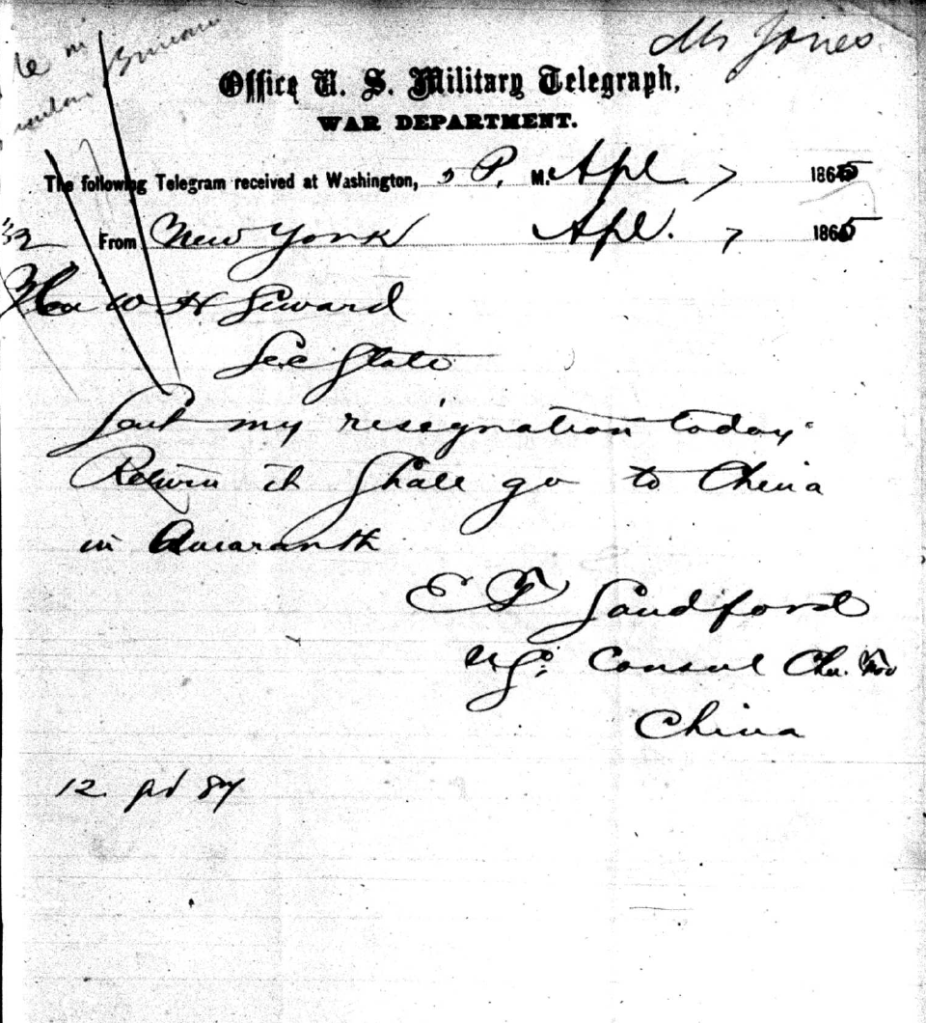 Mr Jones
Office U. S. Military Telegraph,
WAR DEPARTMENT.
The following Telegram received at Washington, 5 P. M. Apl. 7 1865
32 From New York Apl. 7 1865
Hon W H Seward
Sec State
Sent my resignation today.
Return it Shall go to China
in Amaranth
E T Sandford
U.S. Consul Che. Foo
China
12 pd 84